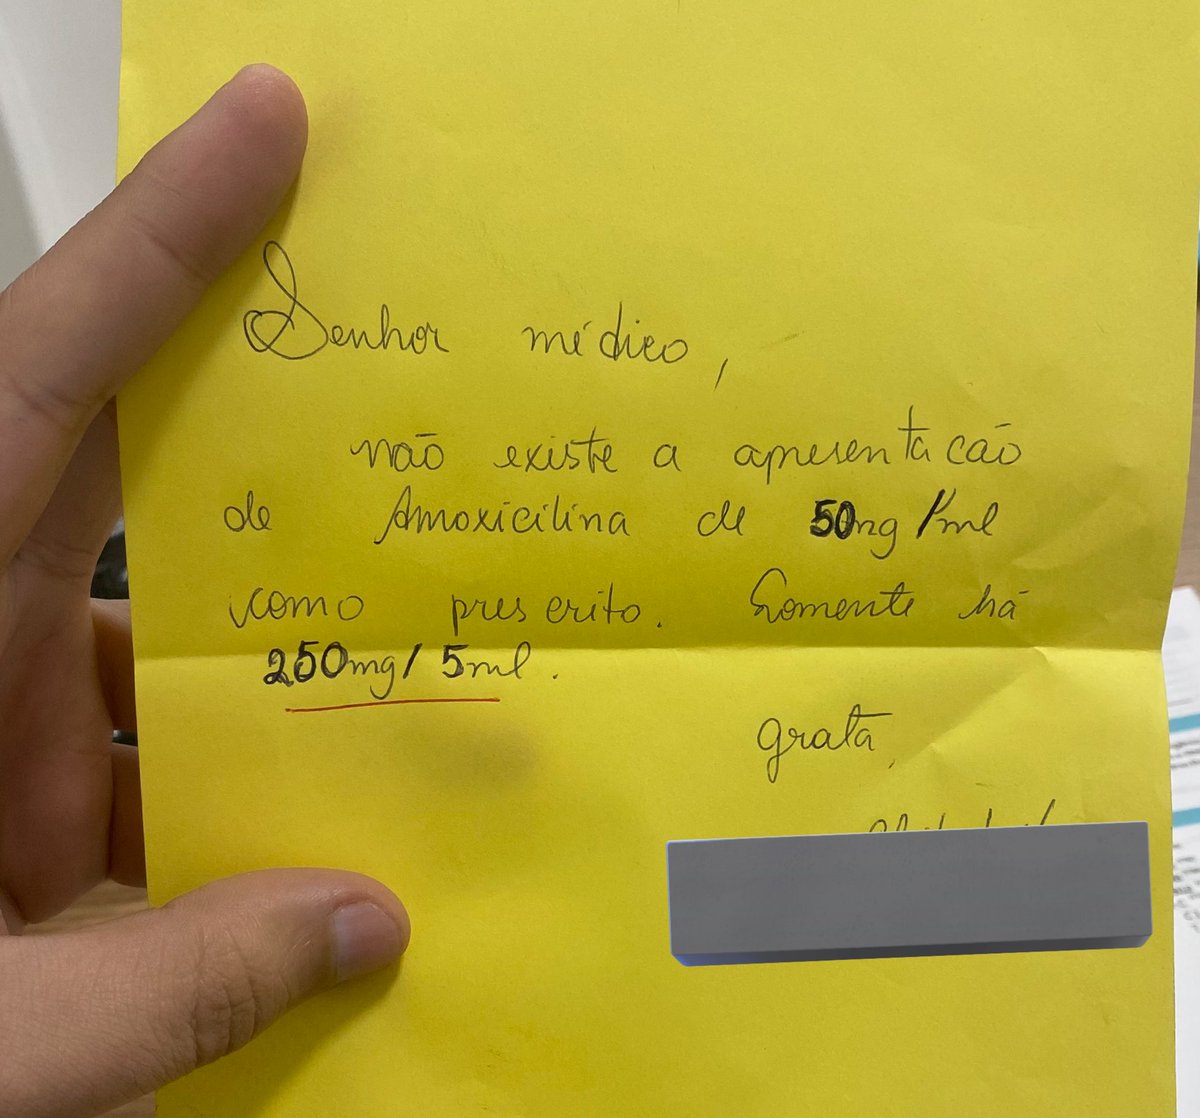 Senhor médico,
não existe a apresentacão
de Amoxicilina de 50mg/ml
como prescrito. Somente há
250mg/5ml.
Grata,